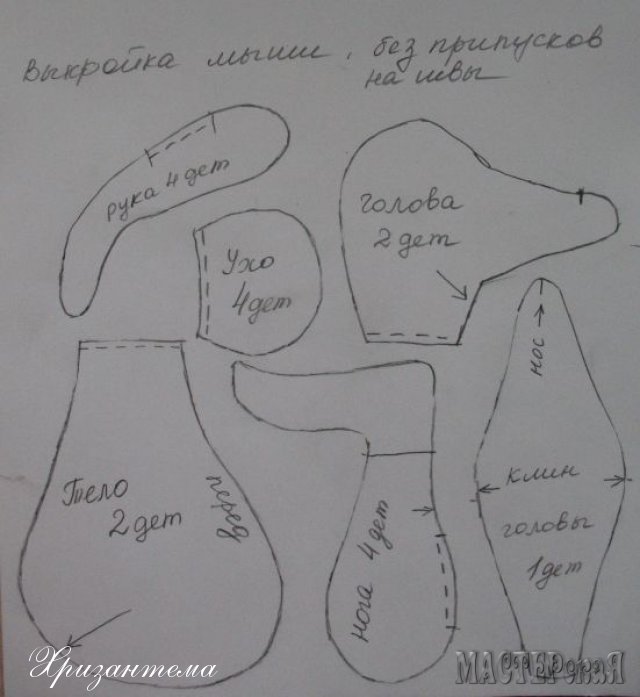 выкройка мыши, без припусков
на швы
рука 4 дет
голова
2 дет
Ухо
4 дет
нос
Тело
2 дет
перед
нога 4 дет
клин
головы
1 дет
Хризантема
МАСТЕРскаЯ